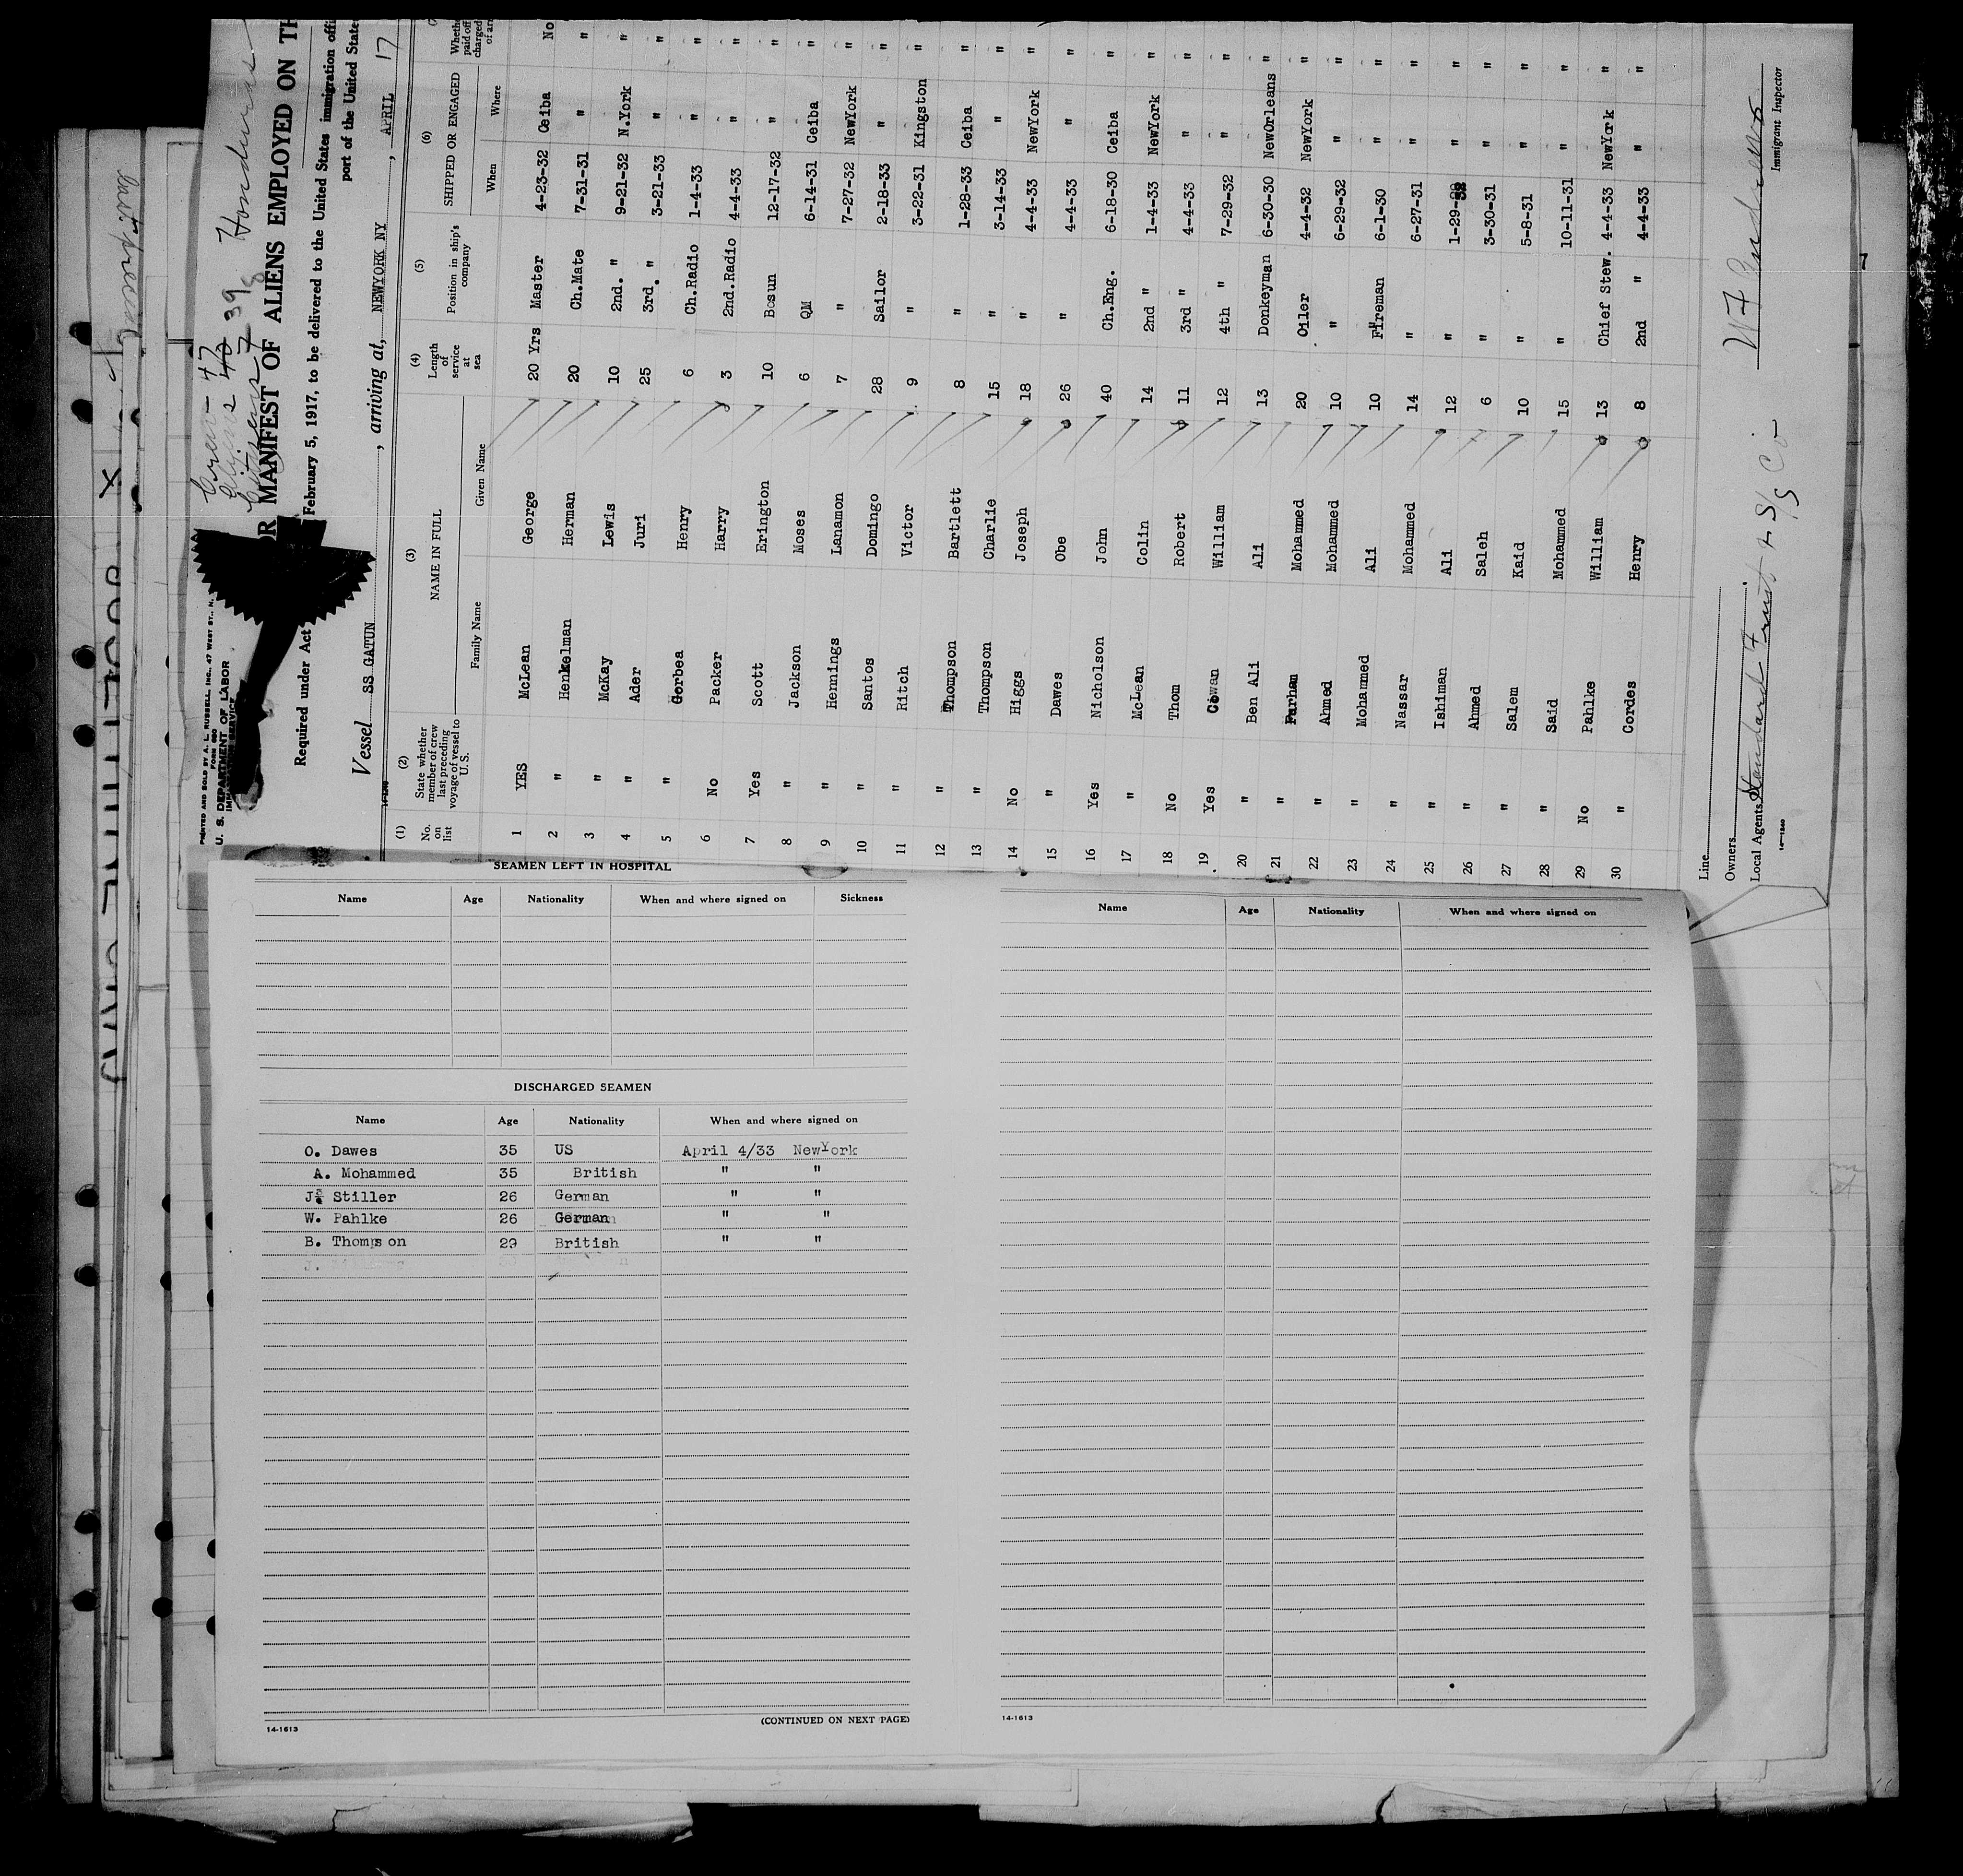 Honduras
Crew - 47
Aliens 40 39
Citizens 7 8
PRINTED AND SOLD BY A. L. RUSSELL, INC., 47 WEST ST., N.
FORM 680
U. S. DEPARTMENT OF LABOR
R MANIFEST OF ALIENS EMPLOYED ON TH
Required under Act February 5, 1917, to be delivered to the United States immigration offi
port of the United State
Vessel SS GATUN , arriving at, NEWYORK NY , APRIL 17
(1) No. on list (2) State whether member of crew last preceding voyage of vessel to U.S. (3) NAME IN FULL Family Name Given Name (4) Length of service at sea (5) Position in ship's company (6) SHIPPED OR ENGAGED When Where
1 YES McLean George 20 Yrs Master 4-23-32 Ceiba No
2 " Henkelman Herman 20 Ch.Mate 7-31-31 " "
3 " McKay Lewis 10 2nd. " 9-21-32 N.York "
4 " Ader Juri 25 3rd. " 3-21-33 " "
5 " Gorbea Henry 6 Ch.Radio 1-4-33 " "
6 No Packer Harry 3 2nd.Radio 4-4-33 " "
7 Yes Scott Erington 10 Bosun 12-17-32 " "
8 " Jackson Moses 6 QM 6-14-31 Ceiba "
9 " Hennings Lanamon 7 " 7-27-32 NewYork "
10 " Santos Domingo 28 Sailor 2-18-33 " "
11 " Ritch Victor 9 " 3-22-31 Kingston "
12 " Thompson Bartlett 8 " 1-28-33 Ceiba "
13 " Thompson Charlie 15 " 3-14-33 " "
14 No Higgs Joseph 18 " 4-4-33 NewYork "
15 " Dawes Obe 26 " 4-4-33 " "
16 Yes Nicholson John 40 Ch.Eng. 6-18-30 Ceiba "
17 " McLean Colin 14 2nd " 1-4-33 NewYork "
18 No Thom Robert 11 3rd " 4-4-33 " "
19 Yes Cowan William 12 4th " 7-29-32 " "
20 " Ben Ali Ali 13 Donkeyman 6-30-30 NewOrleans "
21 " Farhan Mohammed 20 Oiler 4-4-32 NewYork "
22 " Ahmed Mohammed 10 " 6-29-32 " "
23 " Mohammed Ali 10 Fireman 6-1-30 " "
24 " Nassar Mohammed 14 " 6-27-31 " "
25 " Ishiman Ali 12 " 1-29-32 " "
26 " Ahmed Saleh 6 " 3-30-31 " "
27 " Salem Kaid 10 " 5-8-31 " "
28 " Said Mohammed 15 " 10-11-31 " "
29 No Pahlke William 13 Chief Stew. 4-4-33 NewYork "
30 " Cordes Henry 8 2nd " 4-4-33 " "
Line
Owners
Local Agents Standard Fruit & S/S Co
Immigrant Inspector
SEAMEN LEFT IN HOSPITAL
Name Age Nationality When and where signed on Sickness
DISCHARGED SEAMEN
Name Age Nationality When and where signed on
O. Dawes 35 US April 4/33 NewYork
A. Mohammed 35 British " "
J. Stiller 26 German " "
W. Pahlke 26 German " "
B. Thompson 29 British " "
14-1613 (CONTINUED ON NEXT PAGE)
Name Age Nationality When and where signed on
14-1613